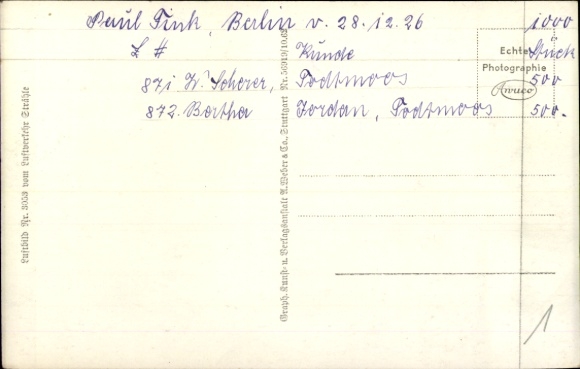 Paul Fink, Berlin v. 28.12.26 1000
L # Kunde Stück
871 W. Scherer, Todtmoos 500
872. Bertha Jordan, Todtmoos 500.
Echte
Photographie
Awuco
Luftbild Nr. 3053 vom Luftverkehr Strähle
Graph. Kunst- u. Verlagsanstalt A. Weber & Co., Stuttgart Nr. 56919/10.62
1